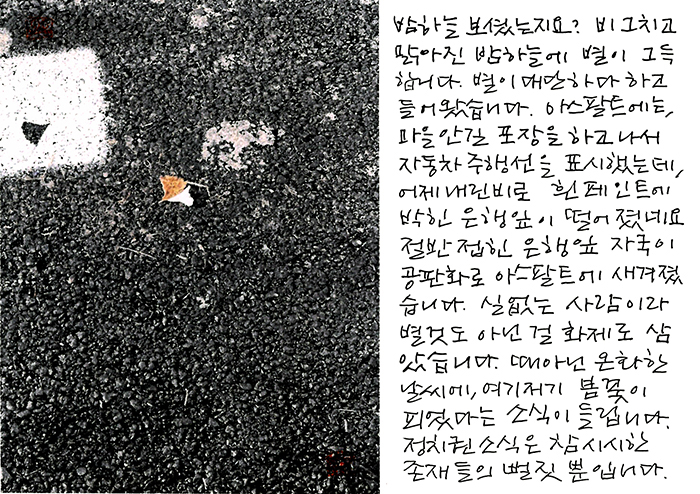 밤하늘 보셨는지요? 비 그치고
맑아진 밤하늘에 별이 그득
합니다. 별이 대단하다 하고
들어왔습니다. 아스팔트에는,
마을안길 포장을 하고나서
자동차 주행선을 표시했는데,
어제 내린비로 흰 페인트에
박힌 은행잎이 떨어졌네요
절반 접힌 은행잎 자국이
공판화로 아스팔트에 새겨졌
습니다. 실없는 사람이라
별것도 아닌 걸 화제로 삼
았습니다. 때아닌 온화한
날씨에, 여기저기 봄꽃이
피었다는 소식이 들립니다.
정치권 소식은 참 시시한
존재들의 뻘짓 뿐입니다.